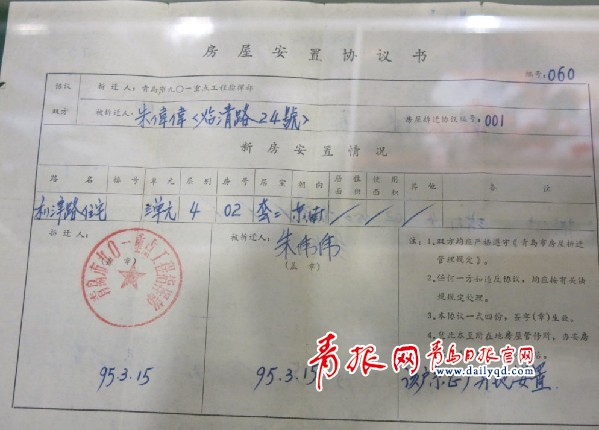 房屋安置协议书
编号:060
协议双方
拆迁人:青岛市九〇一重点工程指挥部
被拆迁人:朱偉偉《临清路24號》
房屋拆迁协议编号:001
新房安置情况
路名 楼号 单元 层别 房号 居室 朝向 居住面积 使用面积 其他 备注
利津路住宅 三单元 4 02 套二 东南 / / /
拆迁人:
(盖章)
青岛市九〇一重点工程指挥部
95.3.15
被拆迁人:
朱伟伟
(盖章)
95.3.15
注:1.双方均应严格遵守《青岛市房屋拆迁
管理规定》。
2.任何一方如违反协议,均应按有关法
规规定处理。
3.本协议一式四份,签字(章)生效。
4.凭此本至所在地房屋管修所,办妥房
该户东
安置
青报网
青岛日报官网
www.dailyqd.com